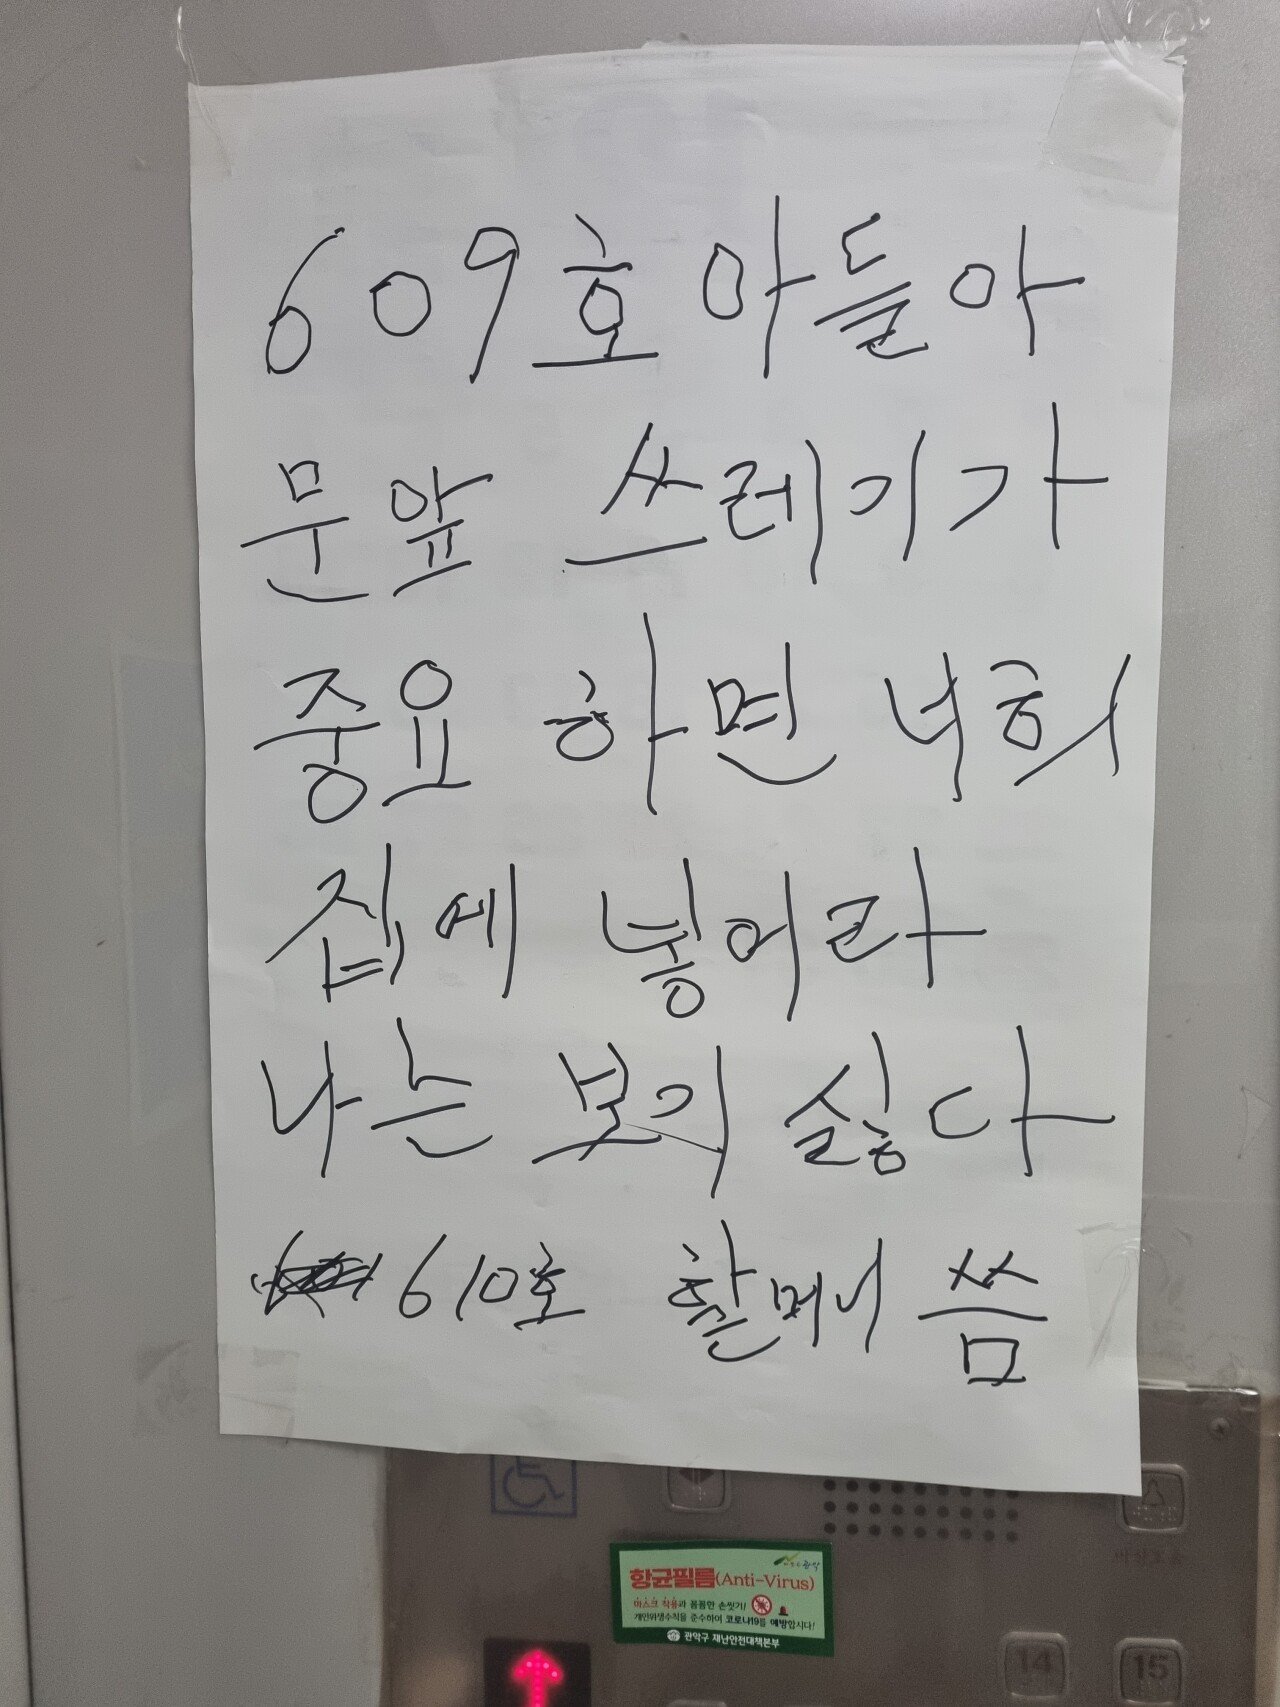 609호 아들아
문앞 쓰레기가
중요 하면 너희
집에 넣어라
나는 보기 싫다
610호 할머니 씀
관악
항균필름(Anti-Virus)
마스크 착용과 꼼꼼한 손씻기!
개인위생수칙을 준수하여 코로나19를 예방합시다!
관악구 재난안전대책본부
14 15